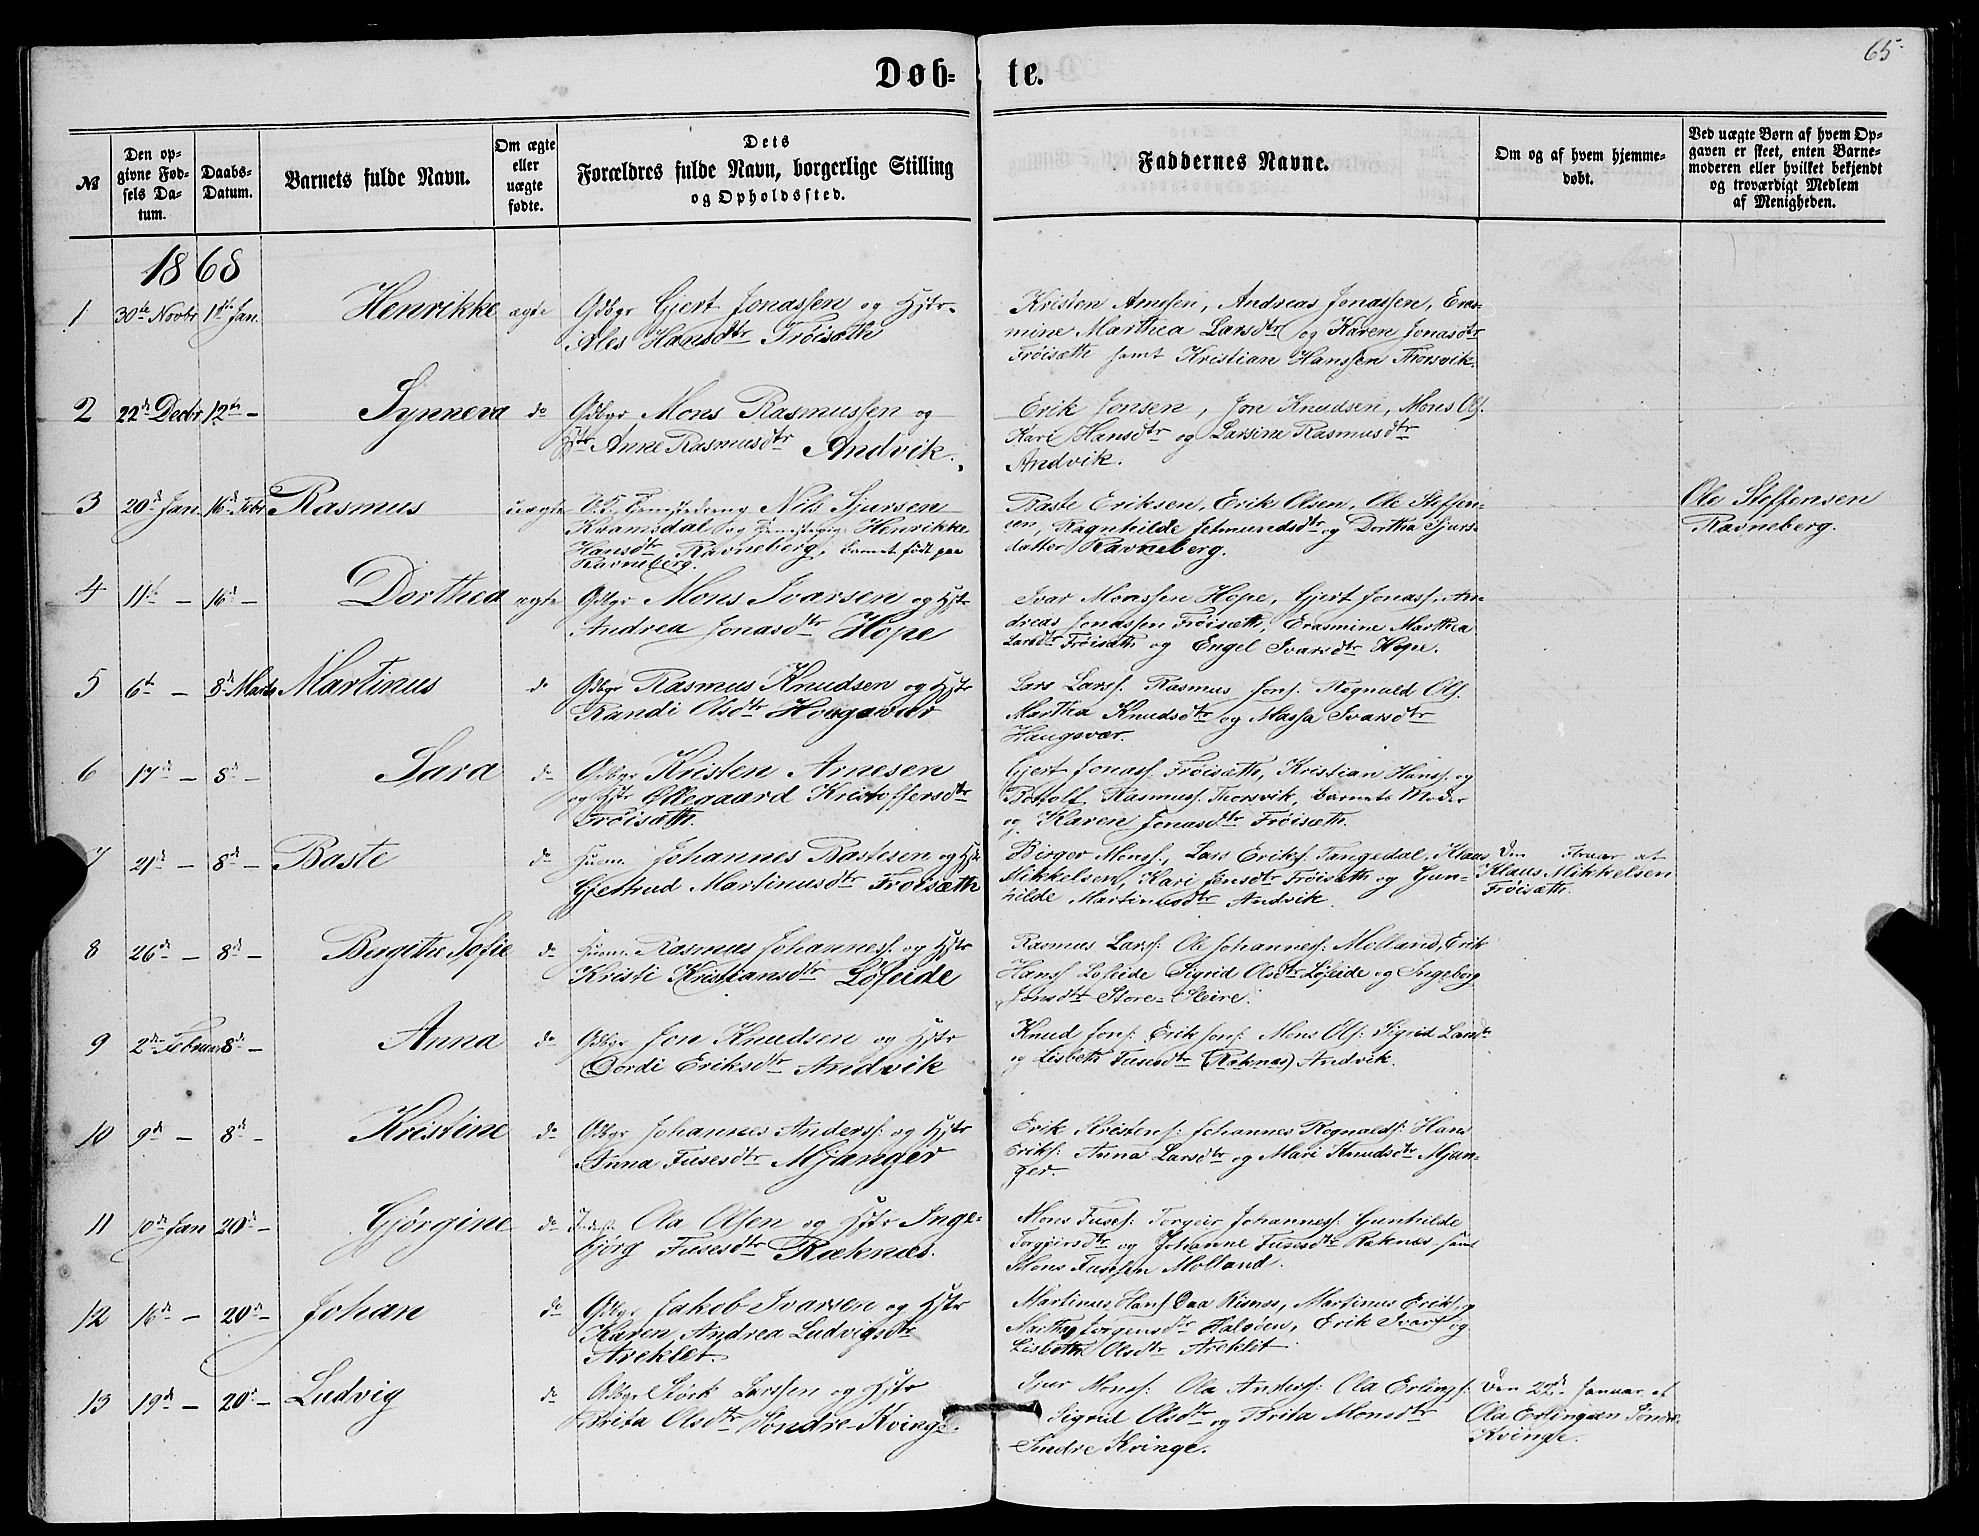 65.
Døb- te.
№
Den opgivne Fødsels Datum.
Daabs-Datum.
Barnets fulde Navn.
Om ægte eller uægte fødte.
Dets Forældres fulde Navn, borgerlige Stilling og Opholdssted.
Faddernes Navne.
Om og af hvem hjemmedøbt.
Ved uægte Børn af hvem Opgaven er skeet, enten Barnemoderen eller hvilket bekjendt og troværdigt Medlem af Menigheden.
1868
1 30te Novbr 1ste Jan. Henrikke ægte Gdbgr Gjert Jonassen og Hstr
Ales Hansdtr Frøisæth
Kristen Arnesen, Andreas Jonassen, Eras-
mine Marthea Larsdtr og Karen Jonasdtr
Frøisæth samt Kristian Hanssen Thorsvik.
2 22de Decbr 12te – Synneva do Gdbgr Mons Rasmussen og
Hstr Anne Rasmusdtr Andvik.
Erik Jonsen, Jon Knudsen, Mons Ols.
Kari Hansdtr og Larsine Rasmusdtr
Andvik.
3 20de Jan 16de Febr Rasmus uægte Nils Sjursen
Kaamsdal og Henrikke
Hansdtr Ravneberg, barnet født paa
Ravneberg.
Baste Eriksen, Erik Olsen, Ole Steffen-
sen, Ragnhilde Jetmundsdtr og Dortha Sjurs-
datter Ravneberg.
Ole Steffensen
Ravneberg.
4 11te – 16de – Dorthea ægte Gdbgr Mons Ivarsen og Hstr
Andrea Jonasdtr Hope
Ivar Monssen Hope, Gjert Jonass. An-
dreas Jonassen Frøisæth, Erasmine Marthea
Larsdtr Frøisæth og Engel Ivarsdtr Hope.
5 6te – 8de Marts Martinus do Gdbgr Rasmus Knudsen og Hstr
Randi Olsdtr Hougsvær
Lars Larss. Rasmus Jons. Rognald Ols.
Martha Knudsdtr og Massa Ivarsdtr
Haugsvær.
6 17de – 8de – Sara do Gdbgr Kristen Arnesen
og Hstr Ollegaard Kristoffersdtr
Frøisæth.
Gjert Jonass. Frøisæth, Kristian Hans. og
Botolf Rasmuss. Thorsvik, barnets Moder
og Karen Jonasdtr Frøisæth.
7 21de – 8de – Baste do Huusm. Johannes Bastesen og Hstr
Gjertrud Martinusdtr Frøisæth
Birger Monss., Lars Eriks. Tangedal, Klaus
Mikkelsen, Kari Jensdtr Frøisæth og Gun-
hilde Martinusdtr Andvik.
Den Februar af
Klaus Mikkelsen
Frøisæth.
8 26de – 8de – Bergithe Sofie do Huusm. Rasmus Johanness. og Hstr
Kristi Kristiansdtr Løfeide
Rasmus Larss: Ole Johanness: Molland, Erik
Hanss Løfeide Sigrid Olsdtr Løfeide og Ingeborg
Jonsdtr Store-Steire.
9 2den Februar 8de – Anna do Gdbgr Jon Knudsen og Hstr
Dordi Eriksdtr Andvik
Knud Jons: Erik Jons: Mons Ols: Sigrid Larsdtr
og Lisbeth Fusesdtr (Raknæs) Andvik.
10 9de – 8de – Kristine do Gdbgr Johannes Anderss: og Hstr
Anna Fusesdtr Mjanger
Erik Kristens: Johannes Rognalds: Hans
Eriks: Anna Larsdtr og Mari Knudsdtr Mjan-
ger.
11 10de Jan 20de – Gjørgine do Ola Olsen og Hstr Inge-
bjørg Fusesdtr Ræknæs.
Mons Fuses: Torgeir Johanness: Gunhilde
Torgeirsdtr og Johanne Fusesdtr Raknes samt
Mons Fusesen Molland.
12 16de – 20de – Johan do Gdbgr Jakob Ivarsen og Hstr
Karen Andrea Ludvigsdtr
Areklet.
Martinus Hans Daa Risnes, Martinus Eriks. og
Martha Jørgensdtr Halsøen, Erik Ivars og
Lisbeth Olsdtr Areklet.
13 19de – 20de – Ludvig do Gdbgr Størk Larssen og Hstr
Brita Olsdtr Søndre-Kvinge.
Sjur Monss: Ola Anderss: Ola Erlings:
Sigrid Olsdtr og Brita Monsdtr
Søndre Kvinge.
Den 29de Januar af
Ola Erlingsen Søndre
Kvinge.